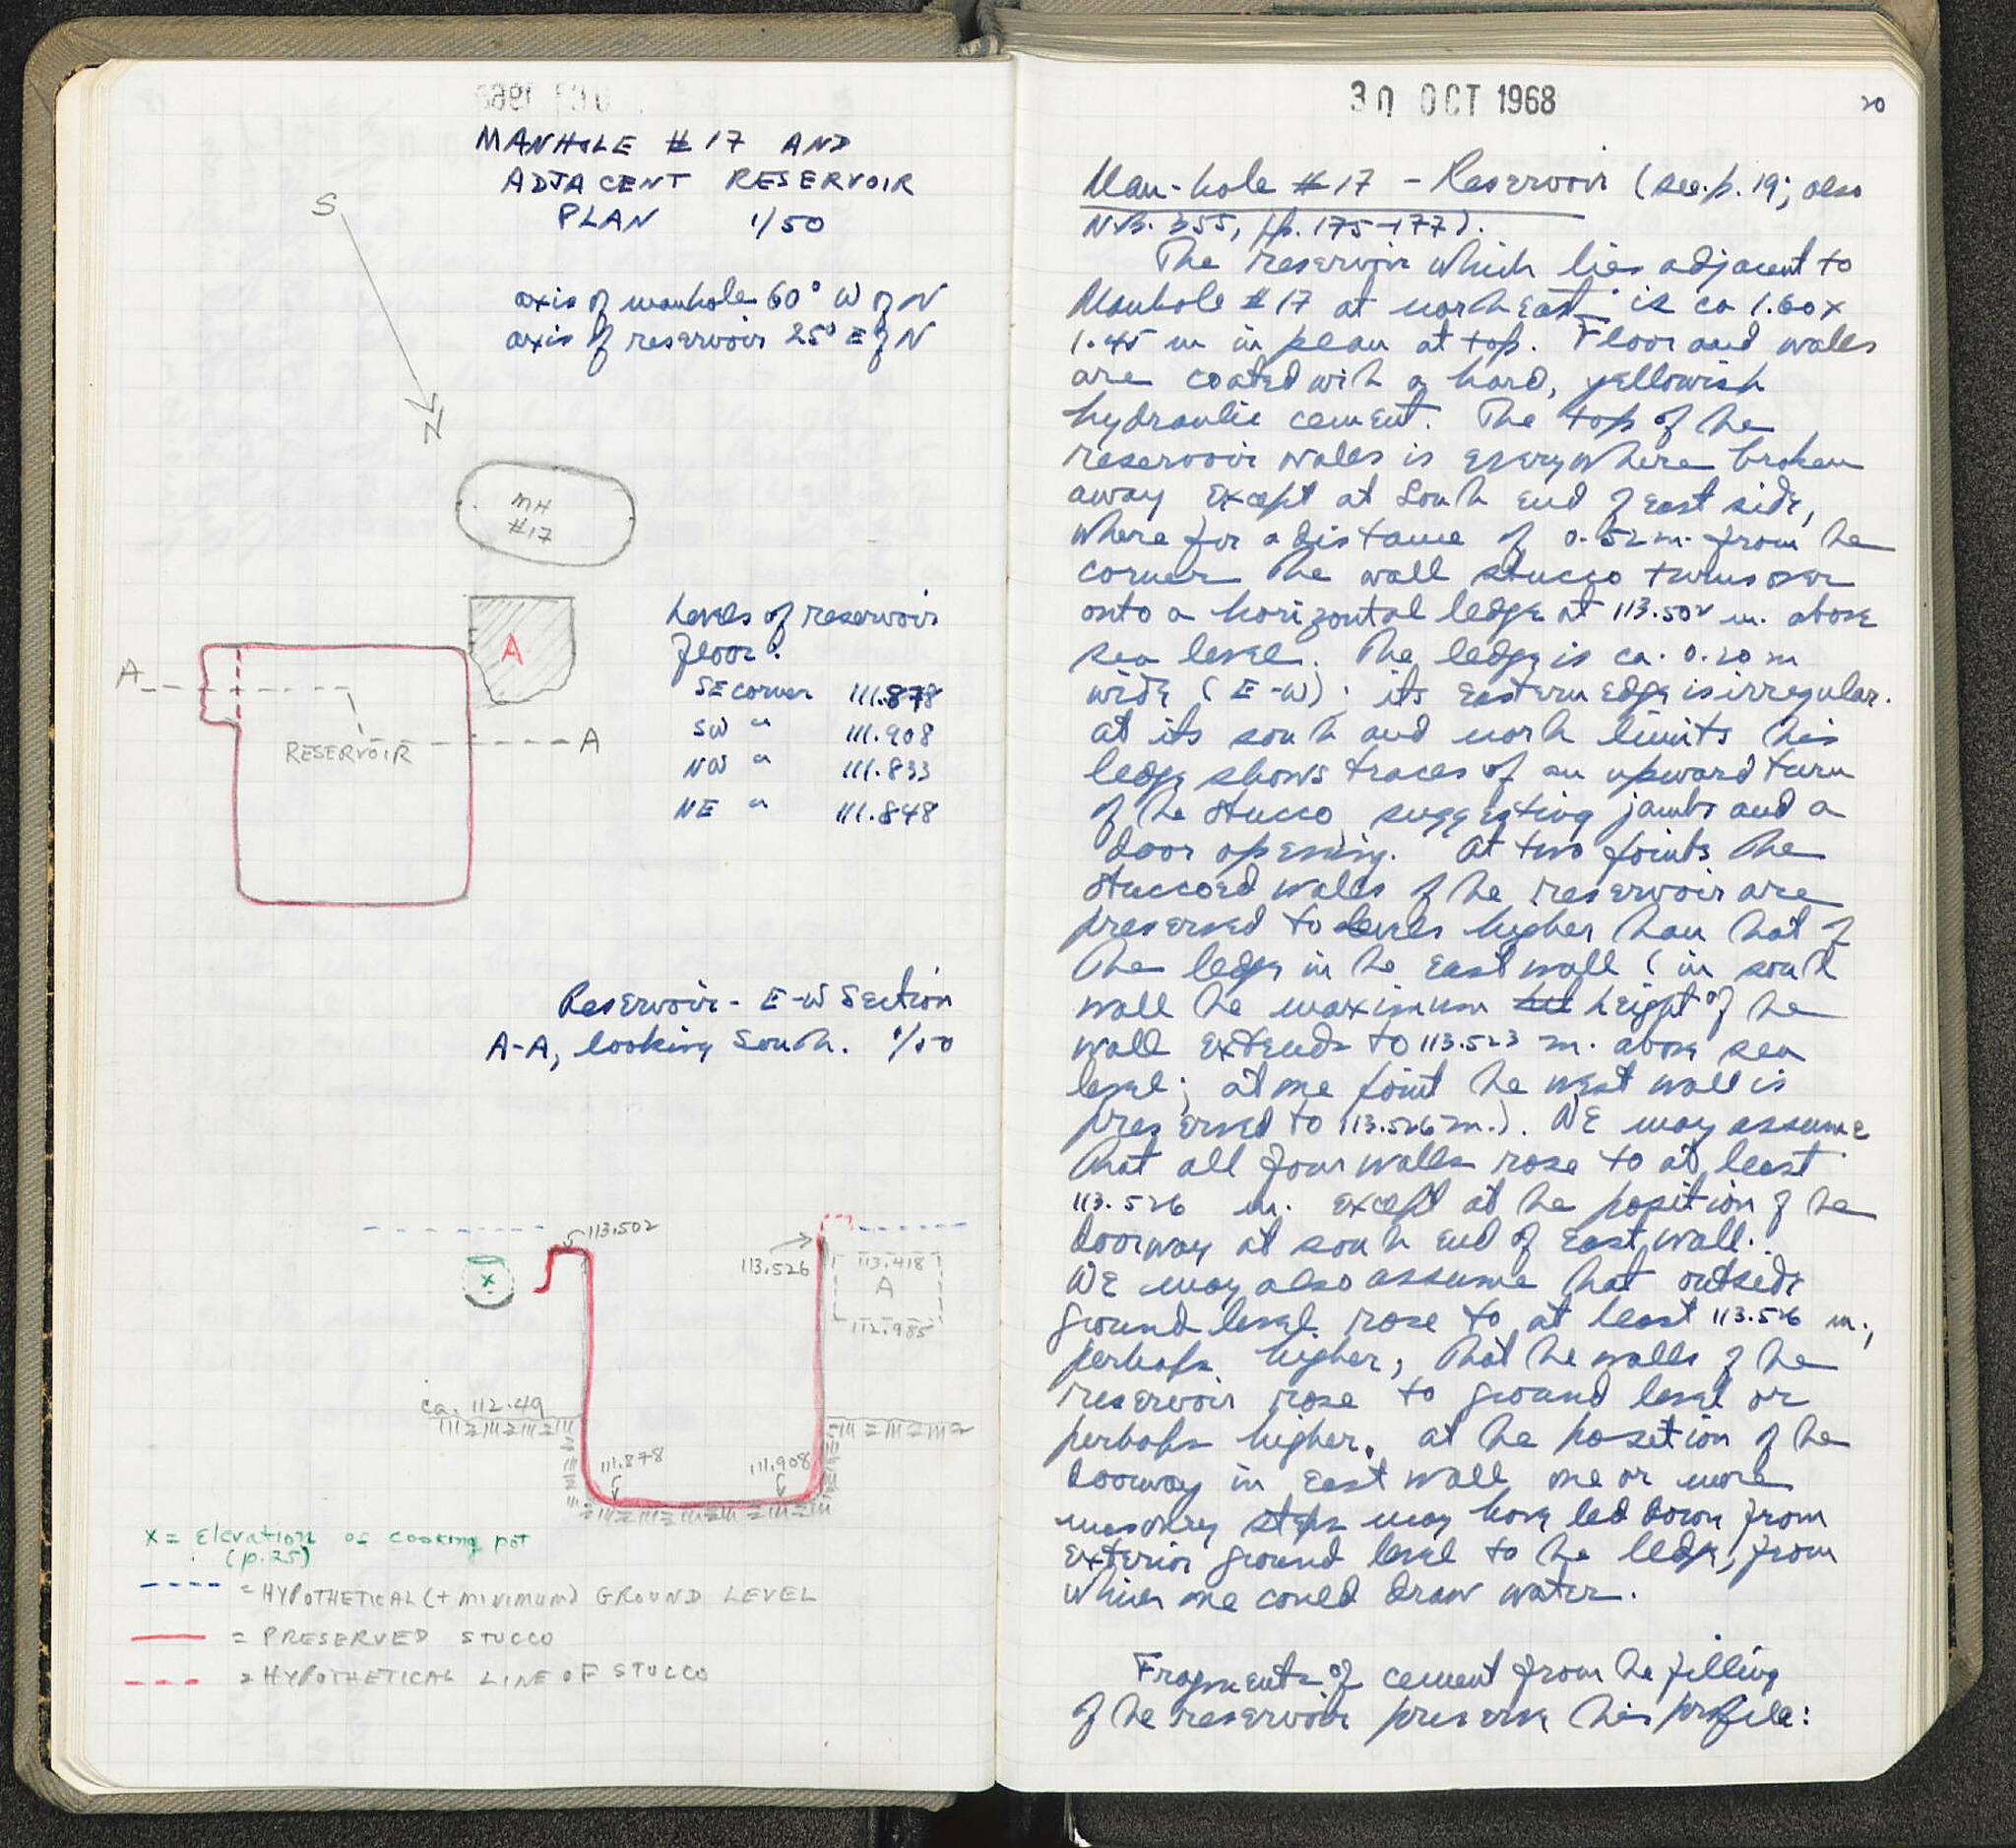 MANHOLE # 17 AND
ADJACENT RESERVOIR
PLAN 1/50
S
axis of manhole 60° W of N
axis of reservoir 25° E of N
N
MH
#17
A
Levels of reservoir
floor:
SE corner 111.878
SW " 111.908
NW " 111.833
NE " 111.848
A
A
RESERVOIR
Reservoir - E-W Section
A-A, looking South. 1/50
113.502
113.526
113.418
A
112.985
x
ca. 112.49
111.878
111.908
x = Elevation of cooking pot
(p.25)
= HYPOTHETICAL (+ MINIMUM) GROUND LEVEL
= PRESERVED STUCCO
= HYPOTHETICAL LINE OF STUCCO
30 OCT 1968
20
Man-hole #17 - Reservoir (see p. 19; also
NB. 355, pp. 175-177).
The reservoir which lies adjacent to
Manhole #17 at northeast is ca 1.60 x
1.45 m in plan at top. Floor and walls
are coated with a hard, yellowish
hydraulic cement. The top of the
reservoir walls is everywhere broken
away except at South end of east side,
where for a distance of 0.52 m. from the
corner the wall stucco turns over
onto a horizontal ledge at 113.502 m. above
sea level. The ledge is ca. 0.20 m
wide (E-W); its eastern edge is irregular.
at its south and north limits this
ledge shows traces of an upward turn
of the stucco suggesting jambs and a
door opening. At two points the
stuccoed walls of the reservoir are
preserved to levels higher than that of
the ledge in the east wall (in south
wall the maximum height of the
wall extends to 113.523 m. above sea
level; at one point the west wall is
preserved to 113.526 m.). We may assume
that all four walls rose to at least
113.526 m. except at the position of the
doorway at south end of East wall.
We may also assume that outside
ground level rose to at least 113.526 m.,
perhaps higher, that the walls of the
reservoir rose to ground level or
perhaps higher. at the position of the
doorway in East wall one or more
masonry steps may have led down from
exterior ground level to the ledge, from
which one could draw water.
Fragments of cement from the filling
of the reservoir preserve this profile: